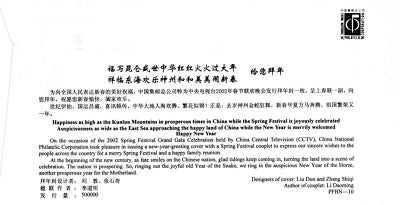 中国集邮总公司
福写昆仑盛世中华红红火火过大年
祥临东海欢乐神州和和美美闹新春
给您拜年
为向全国人民表达新春的美好祝福，中国集邮总公司特为中央电视台2002年春节联欢晚会发行拜年封一枚，呈上春联一副，向
您拜年，祝愿您新春愉快，阖家欢乐。
世纪伊始，国运昌盛，喜讯频传，中华大地人海欢腾，繁花似锦！正是：去岁神州金蛇狂舞，新春华夏万马奔腾，祖国繁荣又
一年。
Happiness as high as the Kunlun Mountains in prosperous times in China while the Spring Festival is joyously celebrated
Auspiciousness as wide as the East Sea approaching the happy land of China while the New Year is merrily welcomed
Happy New Year
On the occasion of the 2002 Spring Festival Grand Gala Celebration held by China Central Television (CCTV), China National
Philatelic Corporation took pleasure in issuing a new-year-greeting cover with a Spring Festival couplet to express our sincere wishes to the
people across the country for a merry Spring Festival and a happy family reunion.
At the beginning of the new century, as fate smiles on the Chinese nation, glad tidings keep coming in, turning the land into a scene of
celebration. The nation is prospering. So, ringing out the joyful old Year of the Snake, we ring in the auspicious New Year of the Horse,
another prosperous year for the Motherland.
拜年封设计者：刘 敦、张石奇
楹 联 作 者：李道明
发 行 量：500000
Designers of cover: Liu Dun and Zhang Shiqi
Author of couplet: Li Daoming
PFBN—10